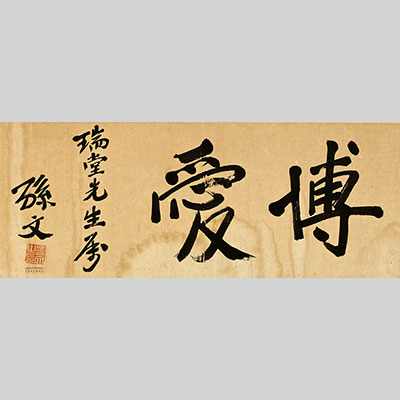 博愛
瑞堂先生属
孫文